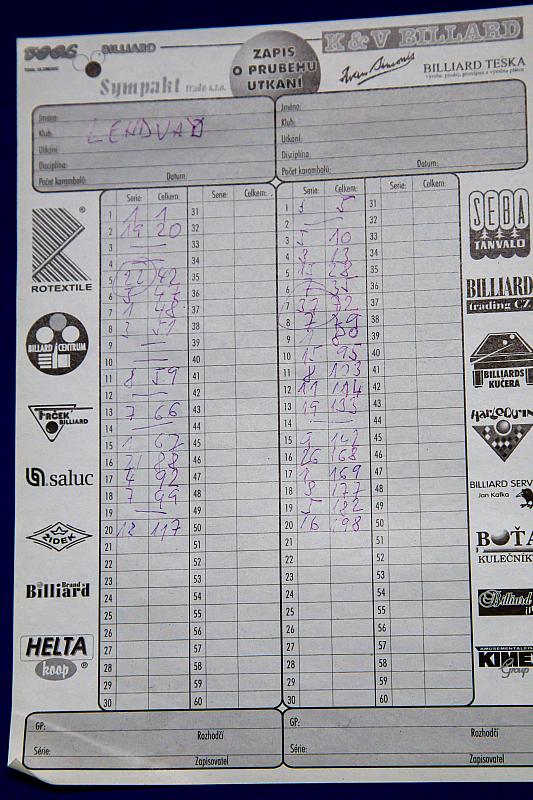 BILLIARD
Sympakt trade s.r.o.
ZAPIS
O PRUBEHU
UTKANI
K & V BILLARD
BILLIARD TEŠKA
Jméno:
Klub:
Utkání:
Disciplína:
Počet karambolů: Datum:
Jméno:
Klub:
Utkání:
Disciplína:
Počet karambolů: Datum:
Serie: Celkem: Serie: Celkem:
1 1 1 31
2 19 20 32
3 — 33
4 — 34
5 22 42 35
6 36
7 1 48 37
8 3 51 38
9 — 39
10 — 40
11 8 59 41
12 — 42
13 7 66 43
14 — 44
15 1 67 45
16 21 88 46
17 4 92 47
18 7 99 48
19 — 49
20 18 117 50
21 51
22 52
23 53
24 54
25 55
26 56
27 57
28 58
29 59
30 60
Serie: Celkem: Serie: Celkem:
1 5 5 31
2 — 32
3 5 10 33
4 3 13 34
5 15 28 35
6 7 35 36
7 37 72 37
8 7 79 38
9 1 80 39
10 15 95 40
11 8 103 41
12 11 114 42
13 19 133 43
14 — 44
15 9 142 45
16 26 168 46
17 1 169 47
18 8 177 48
19 5 182 49
20 16 198 50
21 51
22 52
23 53
24 54
25 55
26 56
27 57
28 58
29 59
30 60
GP:
Rozhodčí
Série:
Zapisovatel
GP:
Rozhodčí
Série:
Zapisovatel
ROTEXTILE
BILLARD CENTRUM
FRČEK
BILLIARD
saluc
ŽIDEK
Brand's
Billiard
HELTA
koop
SEBA
TANVALD
BILLIARD
trading CZ
BILLIARDS
KUČERA
HARLEQUIN
BILLIARD SERV
Jan Kafka
BOŤA
KULEČNÍK
Billiard
AMUSEMENT&LEIS
KIMEX
Group